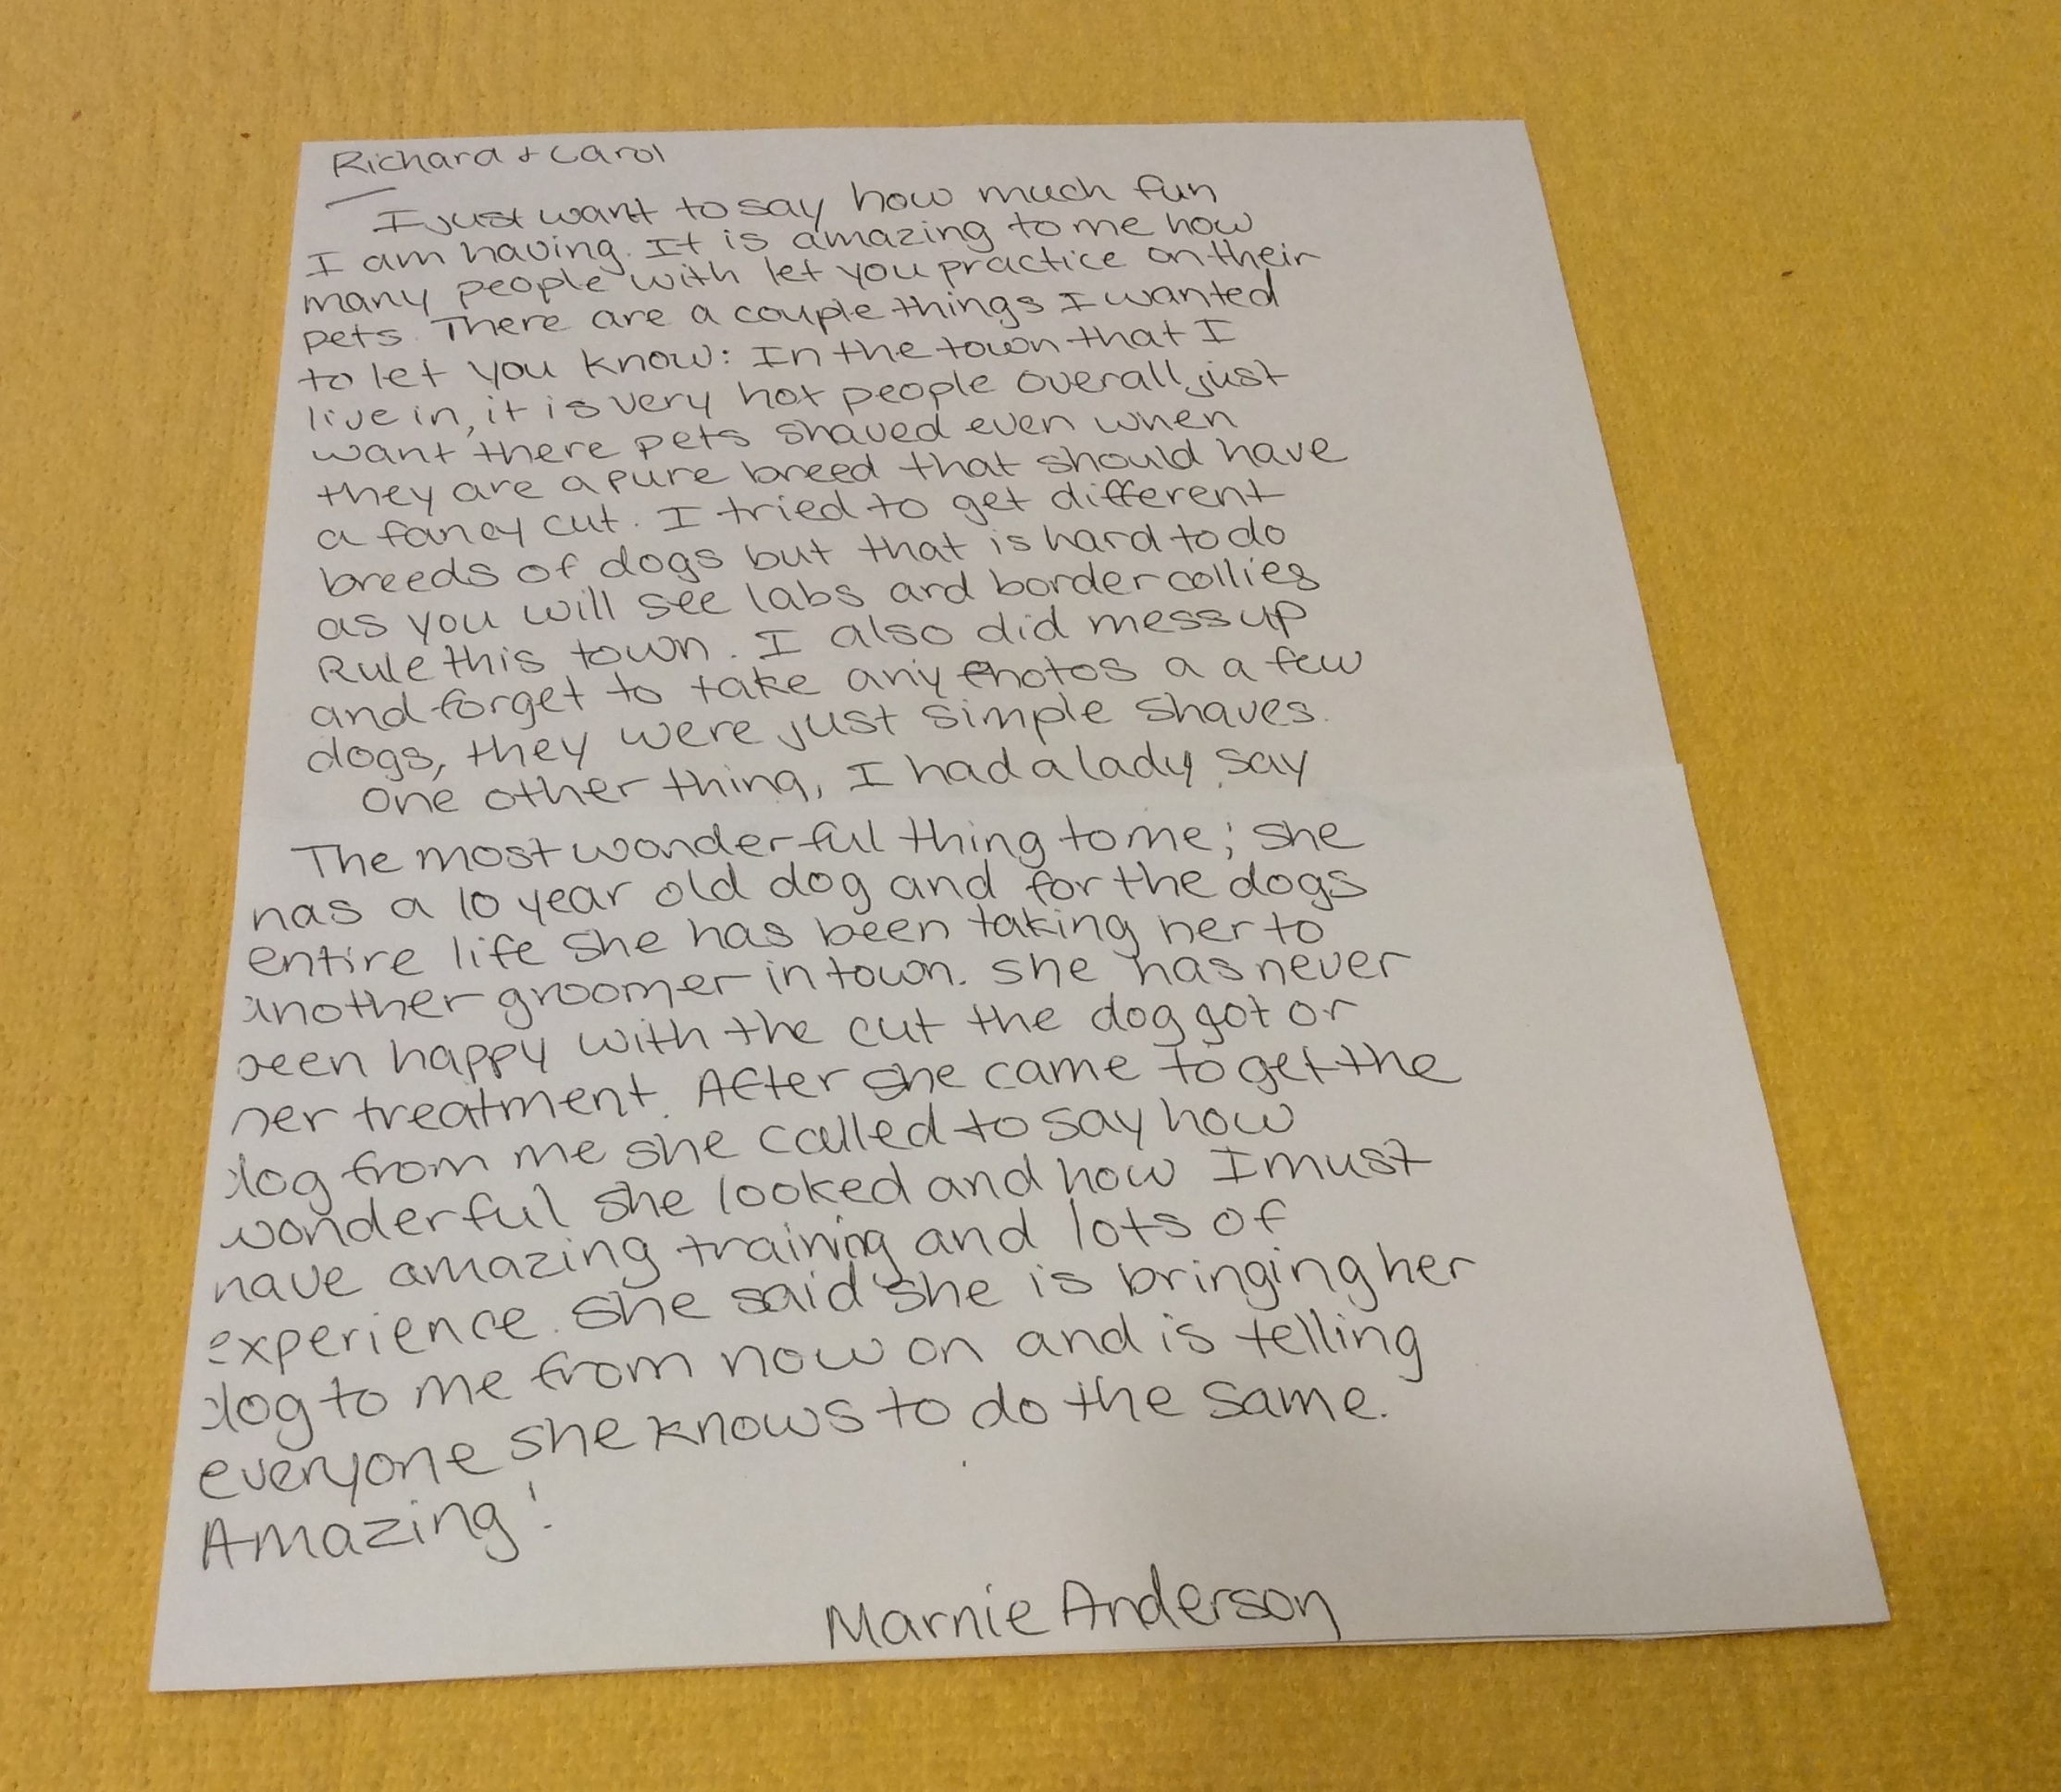 Richard + Carol
I just want to say how much fun
I am having. It is amazing to me how
many people with let you practice on their
pets. There are a couple things I wanted
to let you know: In the town that I
live in, it is very hot people overall just
want there pets shaved even when
they are a pure breed that should have
a fancy cut. I tried to get different
breeds of dogs but that is hard to do
as you will see labs and border collies
Rule this town. I also did mess up
and forget to take any photos a a few
dogs, they were just simple shaves.
One other thing, I had a lady say
The most wonderful thing to me; she
has a 10 year old dog and for the dogs
entire life she has been taking her to
another groomer in town. she has never
been happy with the cut the dog got or
her treatment. After she came to get the
dog from me she called to say how
wonderful she looked and how I must
have amazing training and lots of
experience. She said she is bringing her
dog to me from now on and is telling
everyone she knows to do the same.
Amazing!
Marnie Anderson